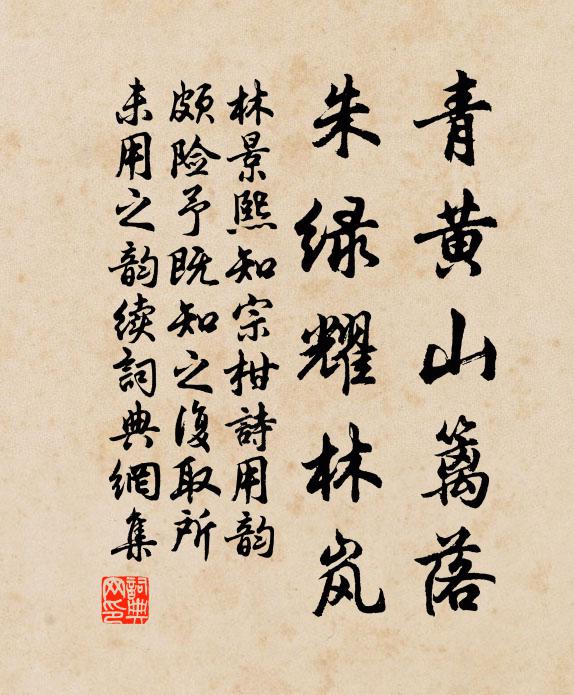 青黄山篱落
朱绿耀林岚
林景熙知宗柑詩用韵
颇险予既知之復取所
未用之韵续詞典網集
詞典网印